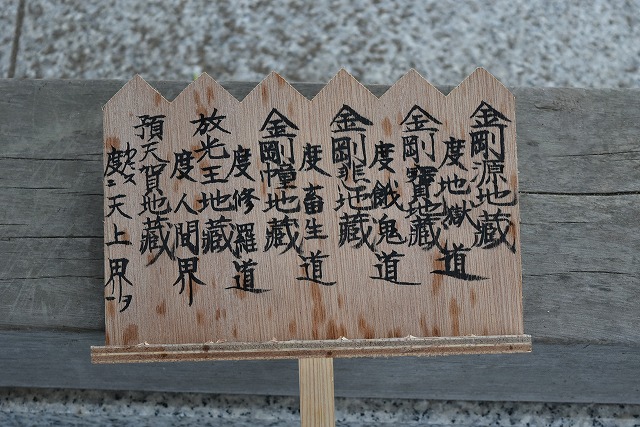 金剛源地蔵
度地獄道
金剛寳地蔵
度餓鬼道
金剛悲地蔵
度畜生道
金剛幢地蔵
度修羅道
放光王地蔵
度人間界
預天賀地蔵
度ニ天上界一ヲ